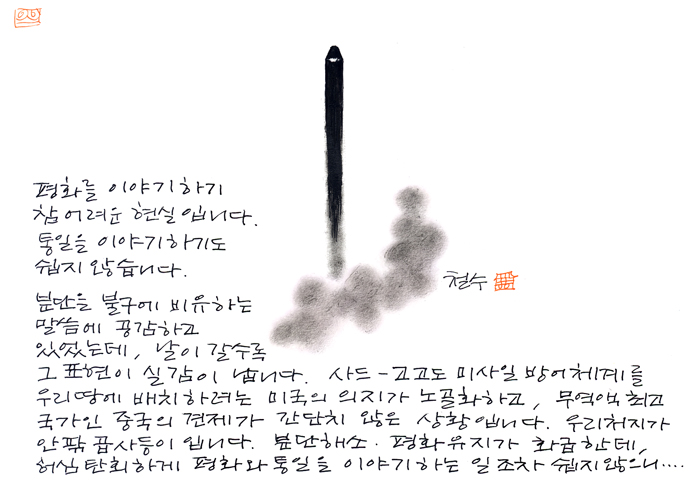 평화를 이야기하기
참 어려운 현실입니다.
통일을 이야기하기도
쉽지 않습니다.
철수
분단을 불구에 비유하는
말씀에 공감하고
있었는데, 날이 갈수록
그 표현이 실감이 납니다. 사드-고고도 미사일 방어체계를
우리땅에 배치하려는 미국의 의지가 노골화하고, 무역액 최고
국가인 중국의 견제가 간단치 않은 상황입니다. 우리처지가
안팎 꼽사등이 입니다. 분단해소·평화유지가 화급한데,
허심탄회하게 평화와 통일을 이야기하는 일조차 쉽지않으니····